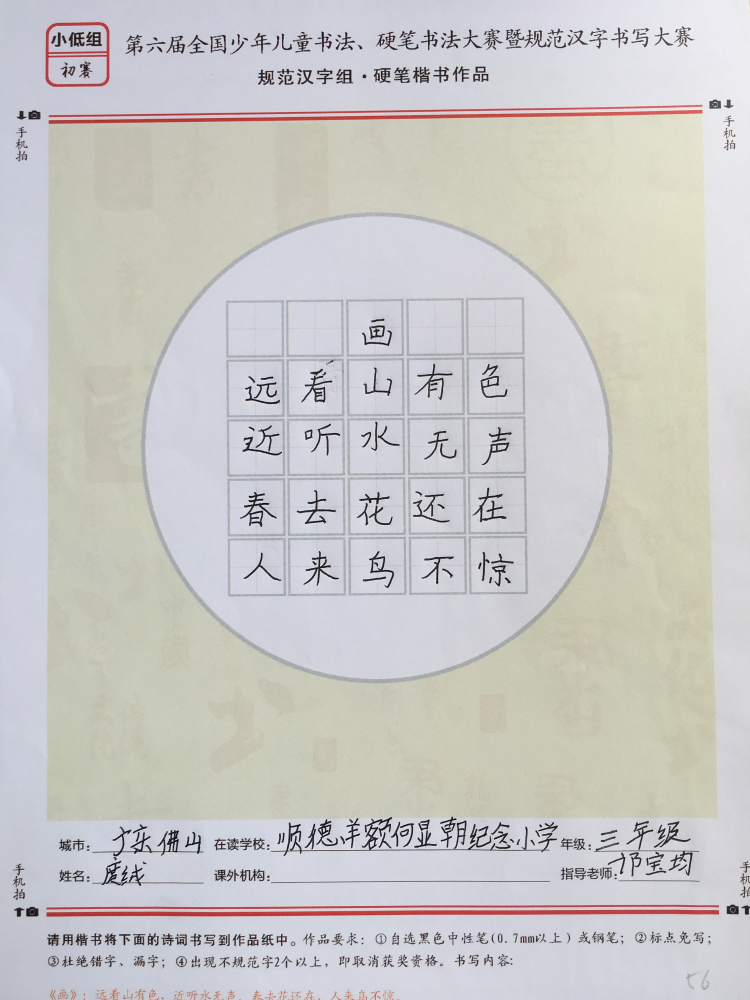 小低组
初赛
第六届全国少年儿童书法、硬笔书法大赛暨规范汉字书写大赛
规范汉字组·硬笔楷书作品
手机拍
手机拍
画
远看山有色
近听水无声
春去花还在
人来鸟不惊
城市：广东佛山 在读学校：顺德羊额何显朝纪念小学 年级：三年级
姓名： 课外机构： 指导老师：邝宝均
手机拍
手机拍
请用楷书将下面的诗词书写到作品纸中。作品要求：①自选黑色中性笔(0.7mm以上）或钢笔；②标点免写；
③杜绝错字、漏字；④出现不规范字2个以上，即取消获奖资格。书写内容：
《画》：远看山有色，近听水无声。春去花还在，人来鸟不惊。
56